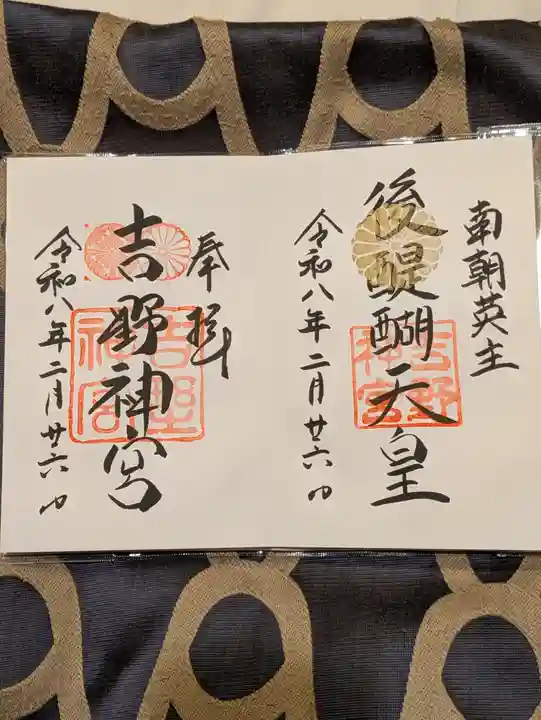 南朝英主
後醍醐天皇
吉野神宮
令和八年二月廿六日
奉拝
吉野神宮
吉野神宮
令和八年二月廿六日